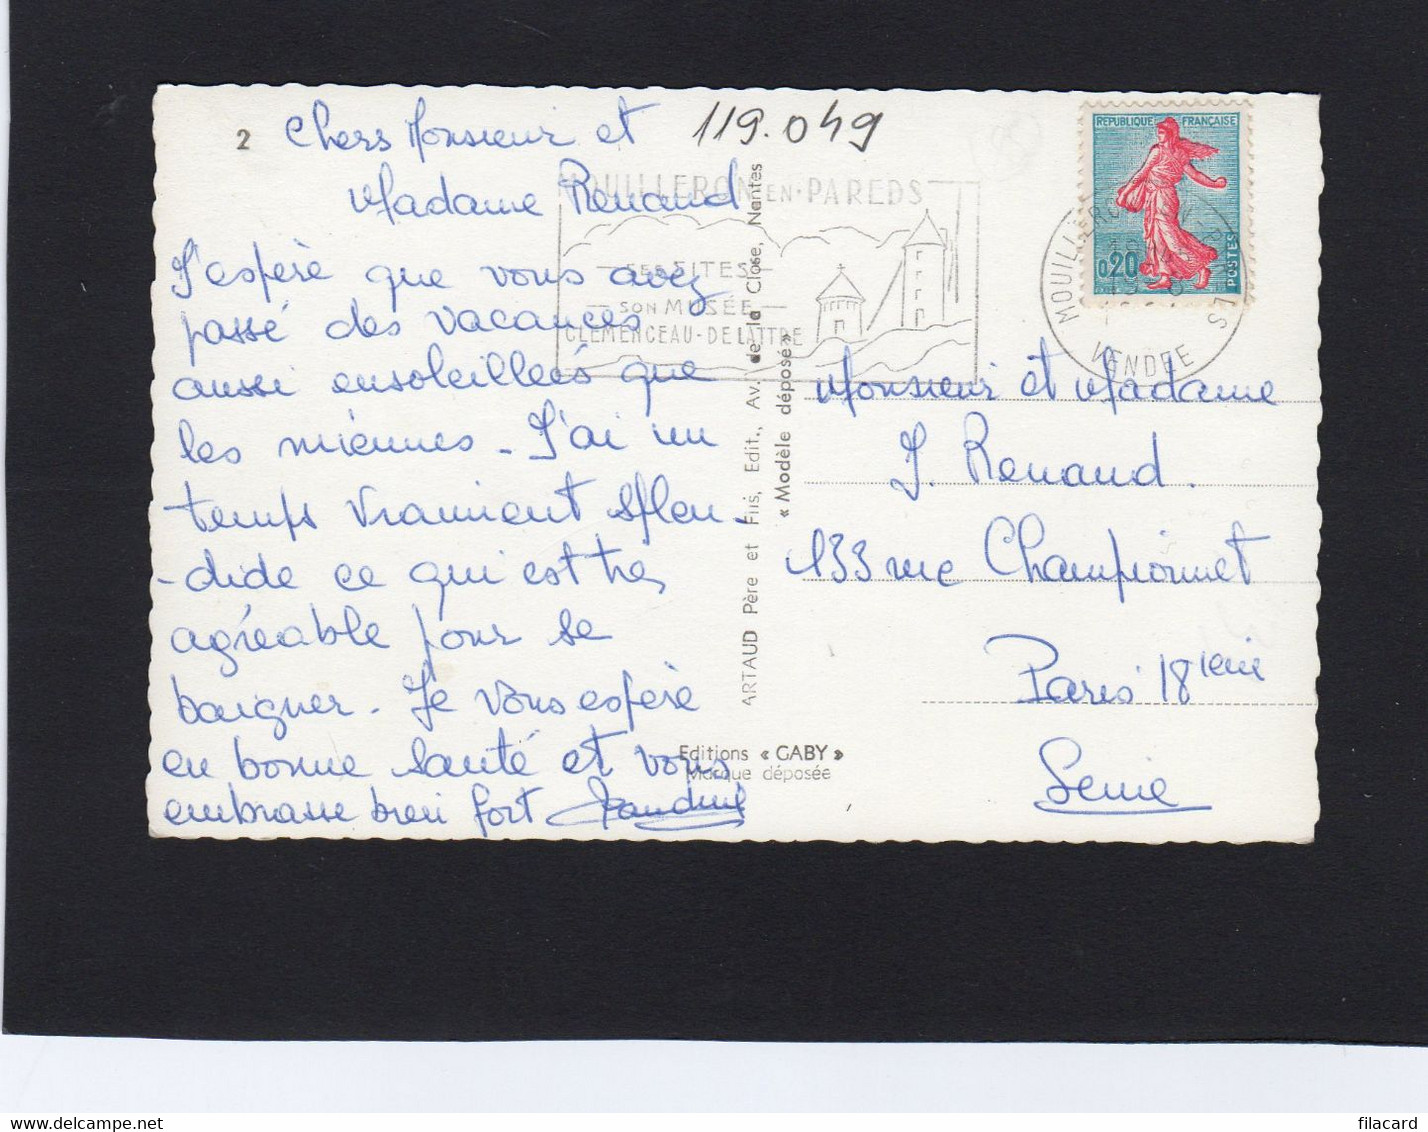 2
Chers Monsieur et
Madame Renaud
J'espère que vous avez
passé des vacances
aussi ensoleillées que
les miennes - J'ai un
temps vraiment splen-
-dide ce qui est très
agréable pour se
baigner. Je vous espère
en bonne santé et vous
embrasse bien fort
119.049
MOUILLERON-EN-PAREDS
SES SITES
SON MUSÉE
CLEMENCEAU-DE LATTRE
ARTAUD Père et Fils, Edit., Av. de la Close, Nantes
« Modèle déposé »
Editions « GABY »
Marque déposée
REPUBLIQUE FRANÇAISE
0,20
POSTES
VENDEE
Monsieur et Madame
J. Renaud.
133 rue Championnet
Paris 18ième
Seine
filacard
delcampe.net